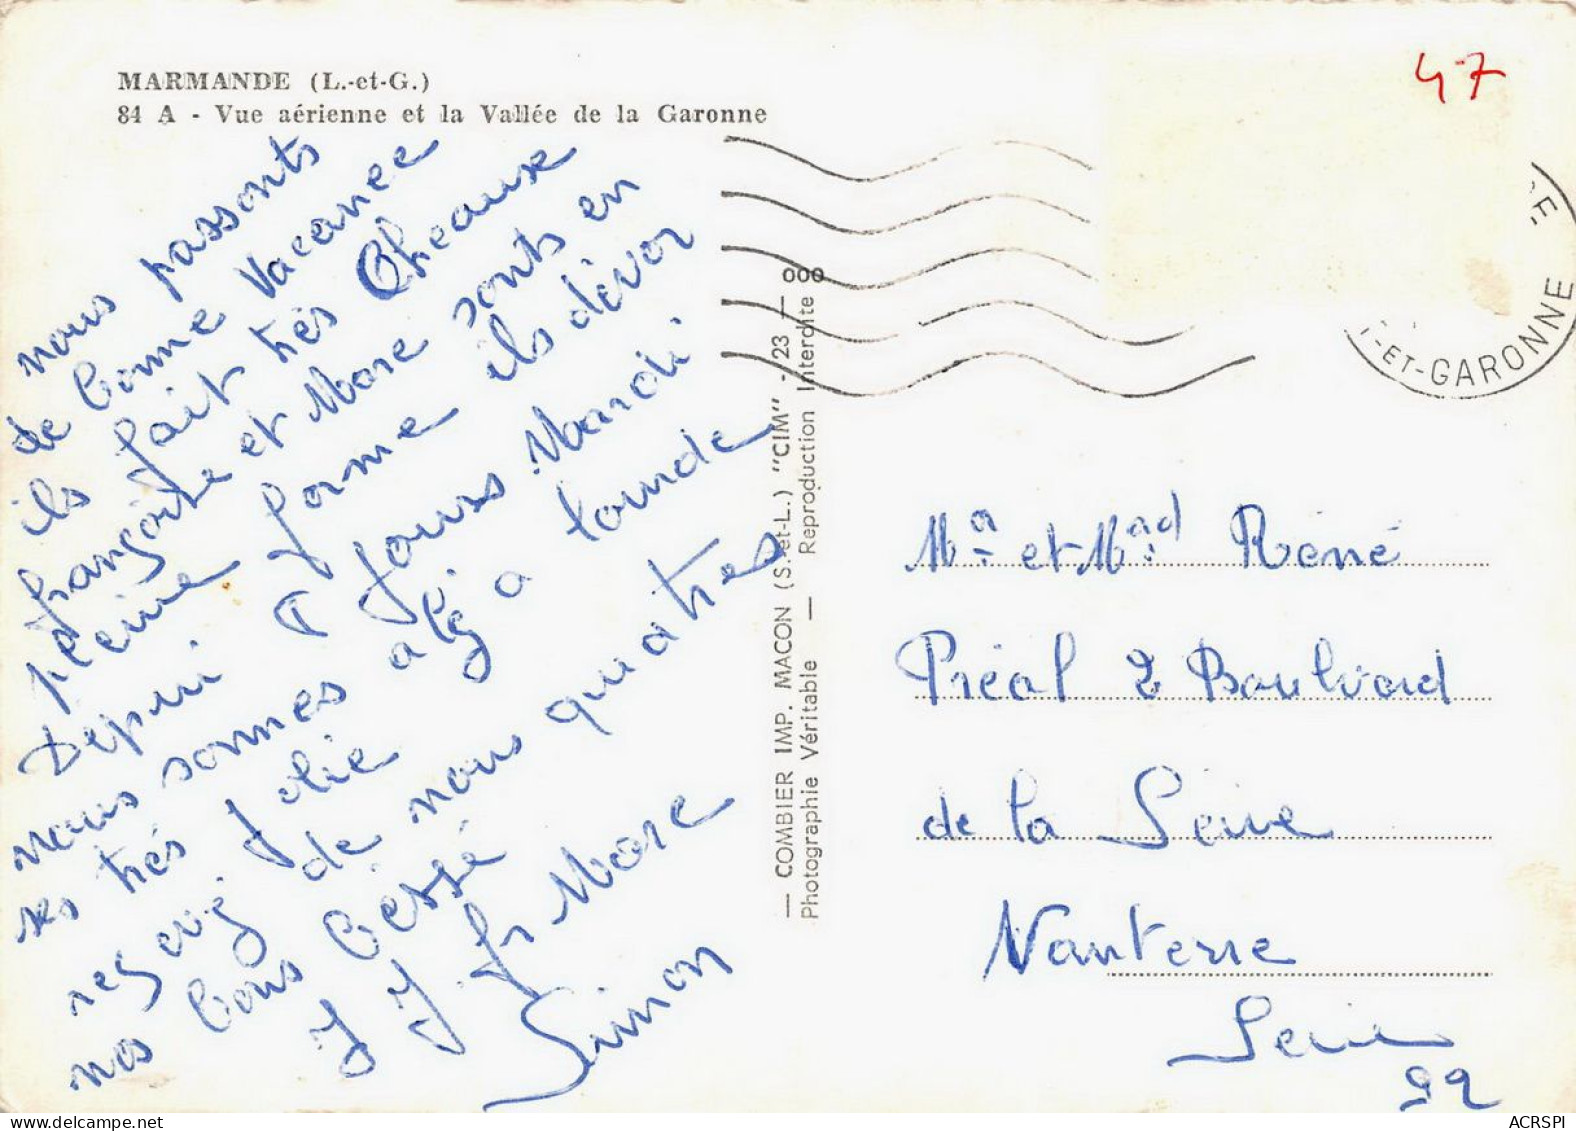 MARMANDE (L.-et-G.)
84 A - Vue aérienne et la Vallée de la Garonne
47
nous passonts
de bonne vacance
ils fait très Cheause
françoise et Marc sonts en
pleine forme ils dévor
Depuui 8 Jours Mardi
nous sommes aléz a Lourde
ses très Jolie
regevéz de nous quatres
nos bons bessé
J J fr Marc
Simon
DE-
T-ET-GARONNE
— COMBIER IMP. MACON (S.-et-L.) "CIM" - 23 — 000
Photographie Véritable — Reproduction Interdite
Mr et Mad Réné
Préal 2 Boulvard
de la Seine
Nanterre
Seine
92
ACRSPI